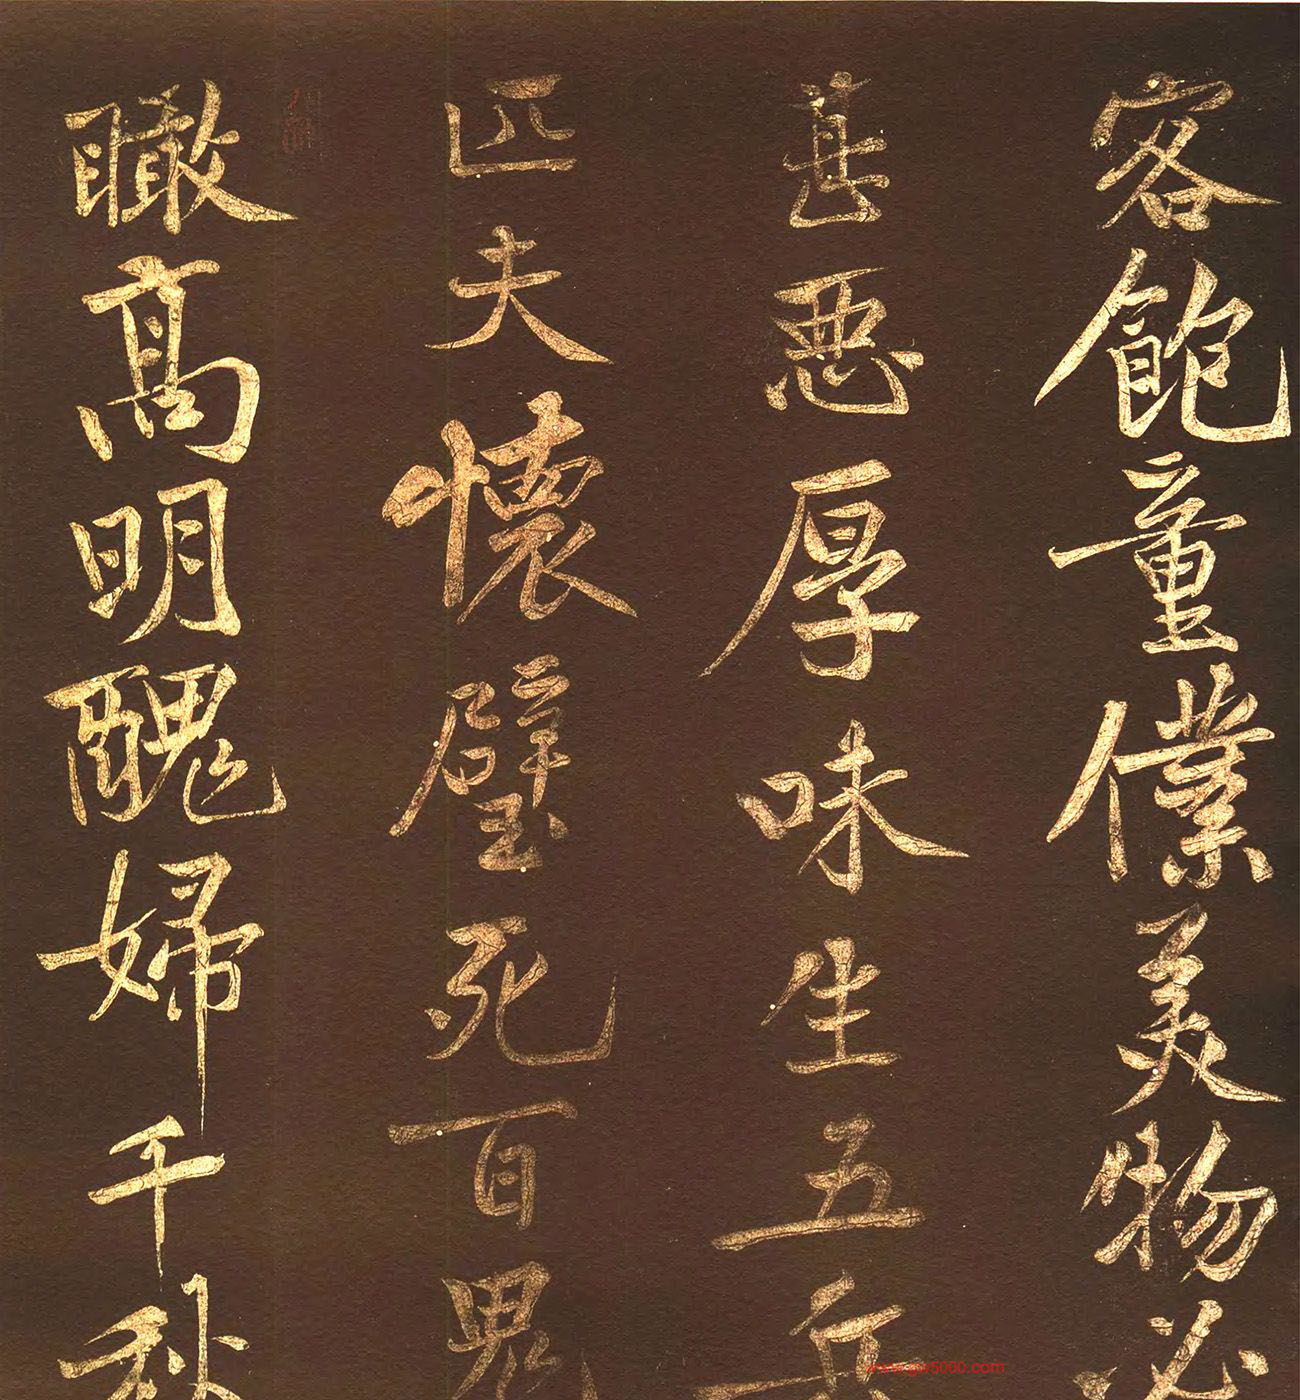 客飽童僕美物必
甚惡厚味生五兵
匹夫懷璧死百鬼
瞰高明醜婦千秋
www.gw5000.com